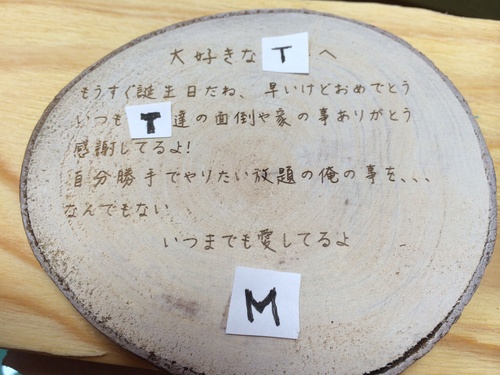 大好きなTへ
もうすぐ誕生日だね、早いけどおめでとう
いつもT達の面倒や家の事ありがとう
感謝してるよ!
自分勝手でやりたい放題の俺の事を、、、
なんでもない
いつまでも愛してるよ
M